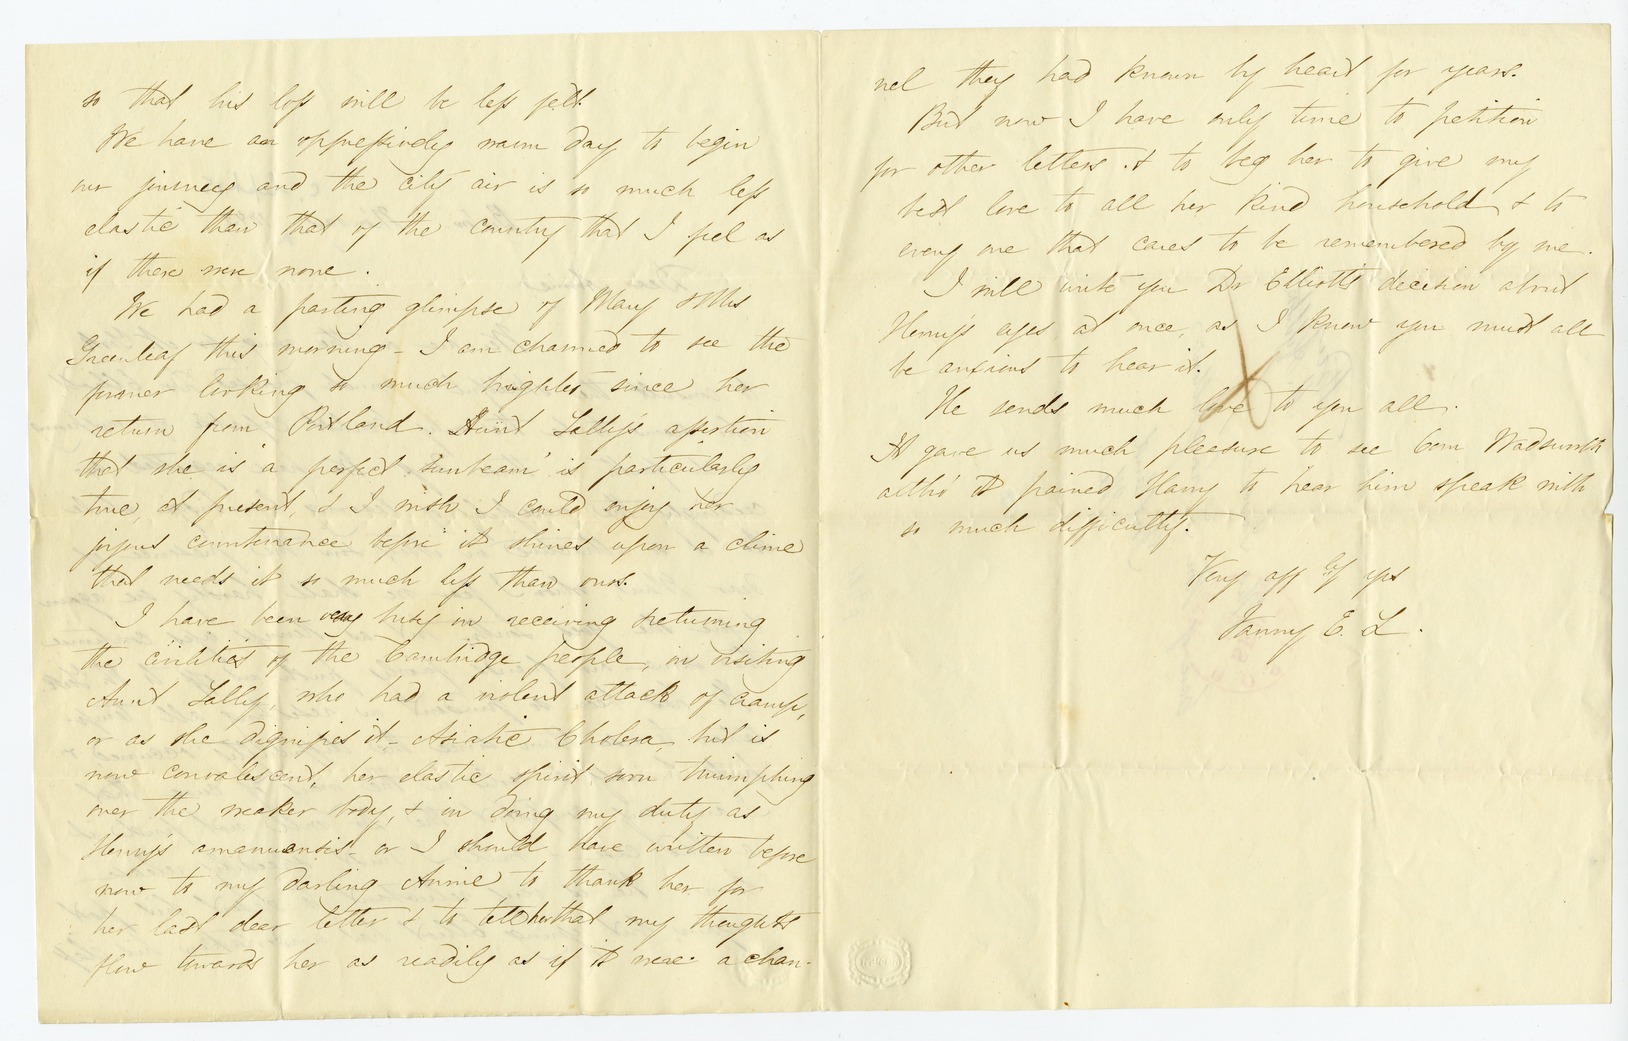 so that his loss will be less felt.
We have an oppressively warm day to begin
our journey and the city air is so much less
elastic than that of the country that I feel as
if there were none.
We had a parting glimpse of Mary & Mrs
Greenleaf this morning - I am charmed to see the
former looking so much brighter since her
return from Portland. Aunt Sally's assertion
that she is "a perfect sunbeam" is particularly
true, at present, & I wish I could enjoy her
joyous countenance before it shines upon a clime
that needs it so much less than ours.
I have been very busy in receiving & returning
the civilities of the Cambridge people, in visiting
Aunt Sally, who had a violent attack of cramp,
or as she dignifies it - Asiatic Cholera, but is
now convalescent, her elastic spirit soon triumphing
over the weaker body, & in doing my duty as
Henry's amanuensis - or I should have written before
now to my darling Annie to thank her for
her last dear letter & to tell her that my thoughts
flow towards her as readily as if it were a chan-
nel they had known by heart for years.
But now I have only time to petition
for other letters & to beg her to give my
best love to all her kind household & to
every one that cares to be remembered by me.
I will write you Dr Elliott's decision about
Henry's eyes at once, as I know you must all
be anxious to hear it.
He sends much love to you all.
It gave us much pleasure to see Com Wadsworth
altho' it pained Harry to hear him speak with
so much difficulty.
Very aff ly yrs
Fanny E. L.